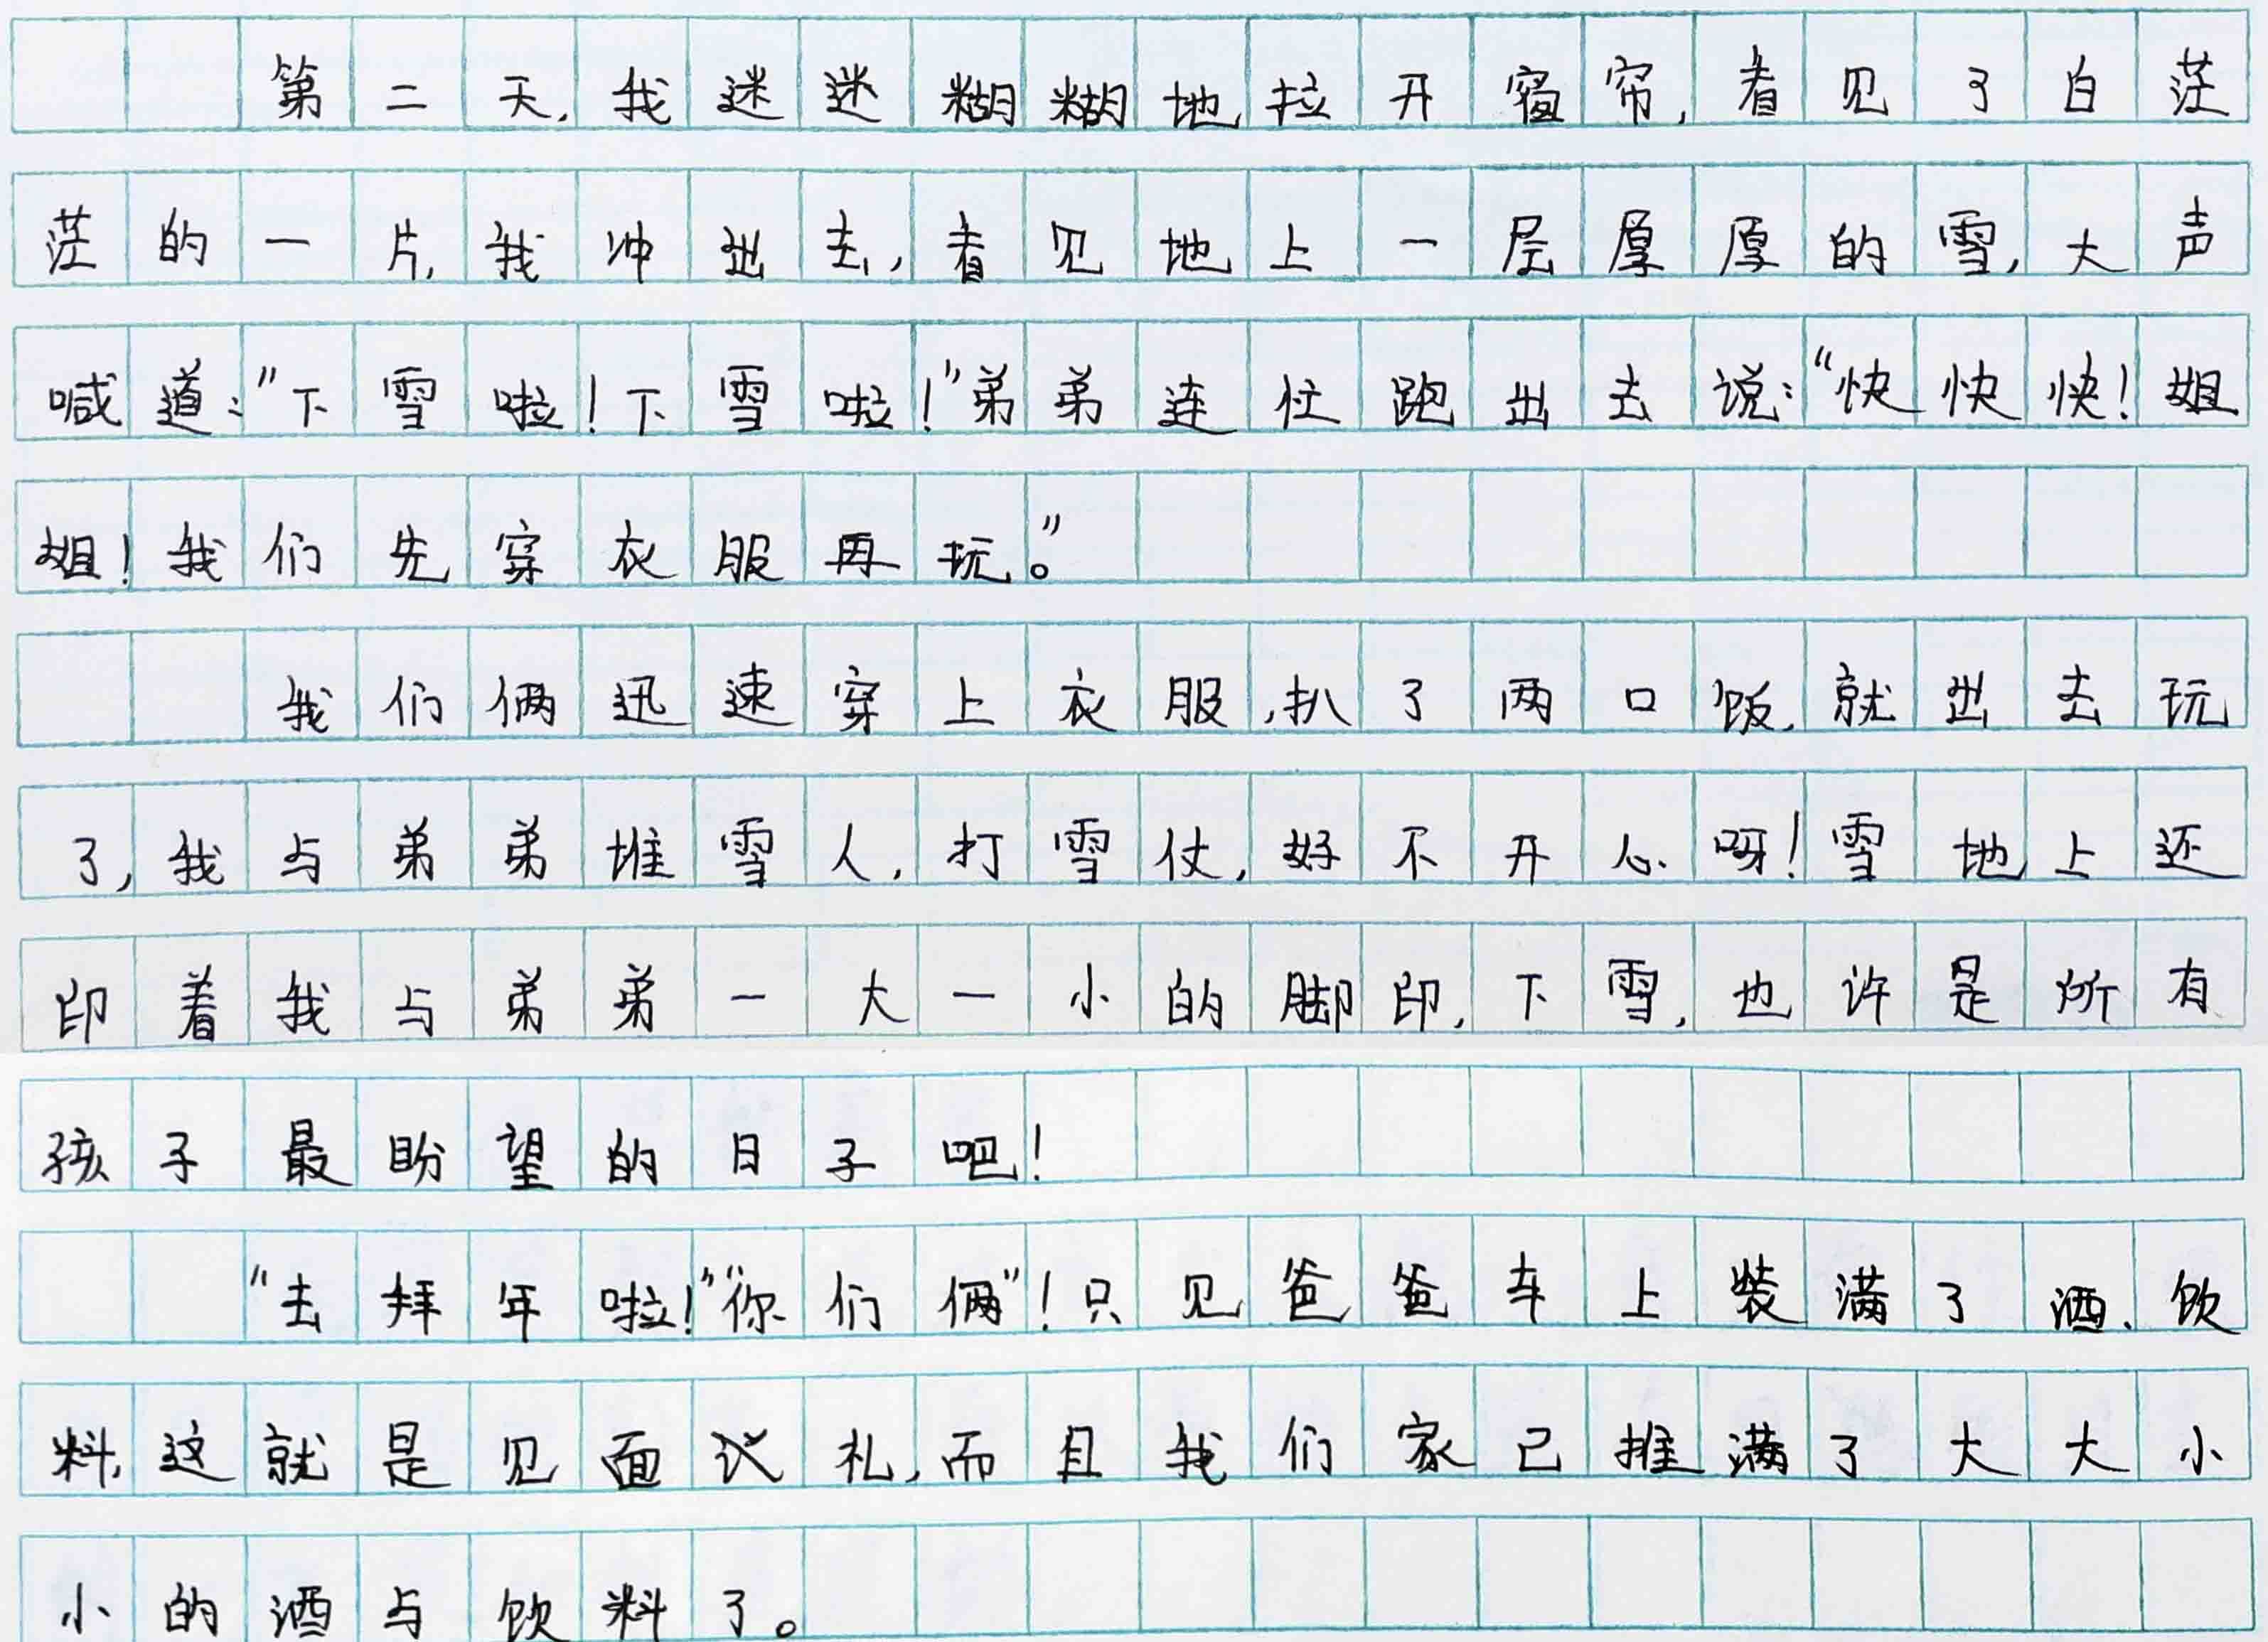 第二天,我迷迷糊糊地拉开窗帘,看见了白茫
茫的一片,我冲出去,看见地上一层厚厚的雪,大声
喊道:"下雪啦!下雪啦!"弟弟连忙跑出去说:"快快快!姐
姐!我们先穿衣服再玩。"
我们俩迅速穿上衣服,扒了两口饭,就出去玩
了,我与弟弟堆雪人,打雪仗,好不开心呀!雪地上还
印着我与弟弟一大一小的脚印,下雪,也许是所有
孩子最盼望的日子吧!
"去拜年啦!""你们俩"!只见爸爸车上装满了酒、饮
料,这就是见面礼,而且我们家已推满了大大小
小的酒与饮料了。